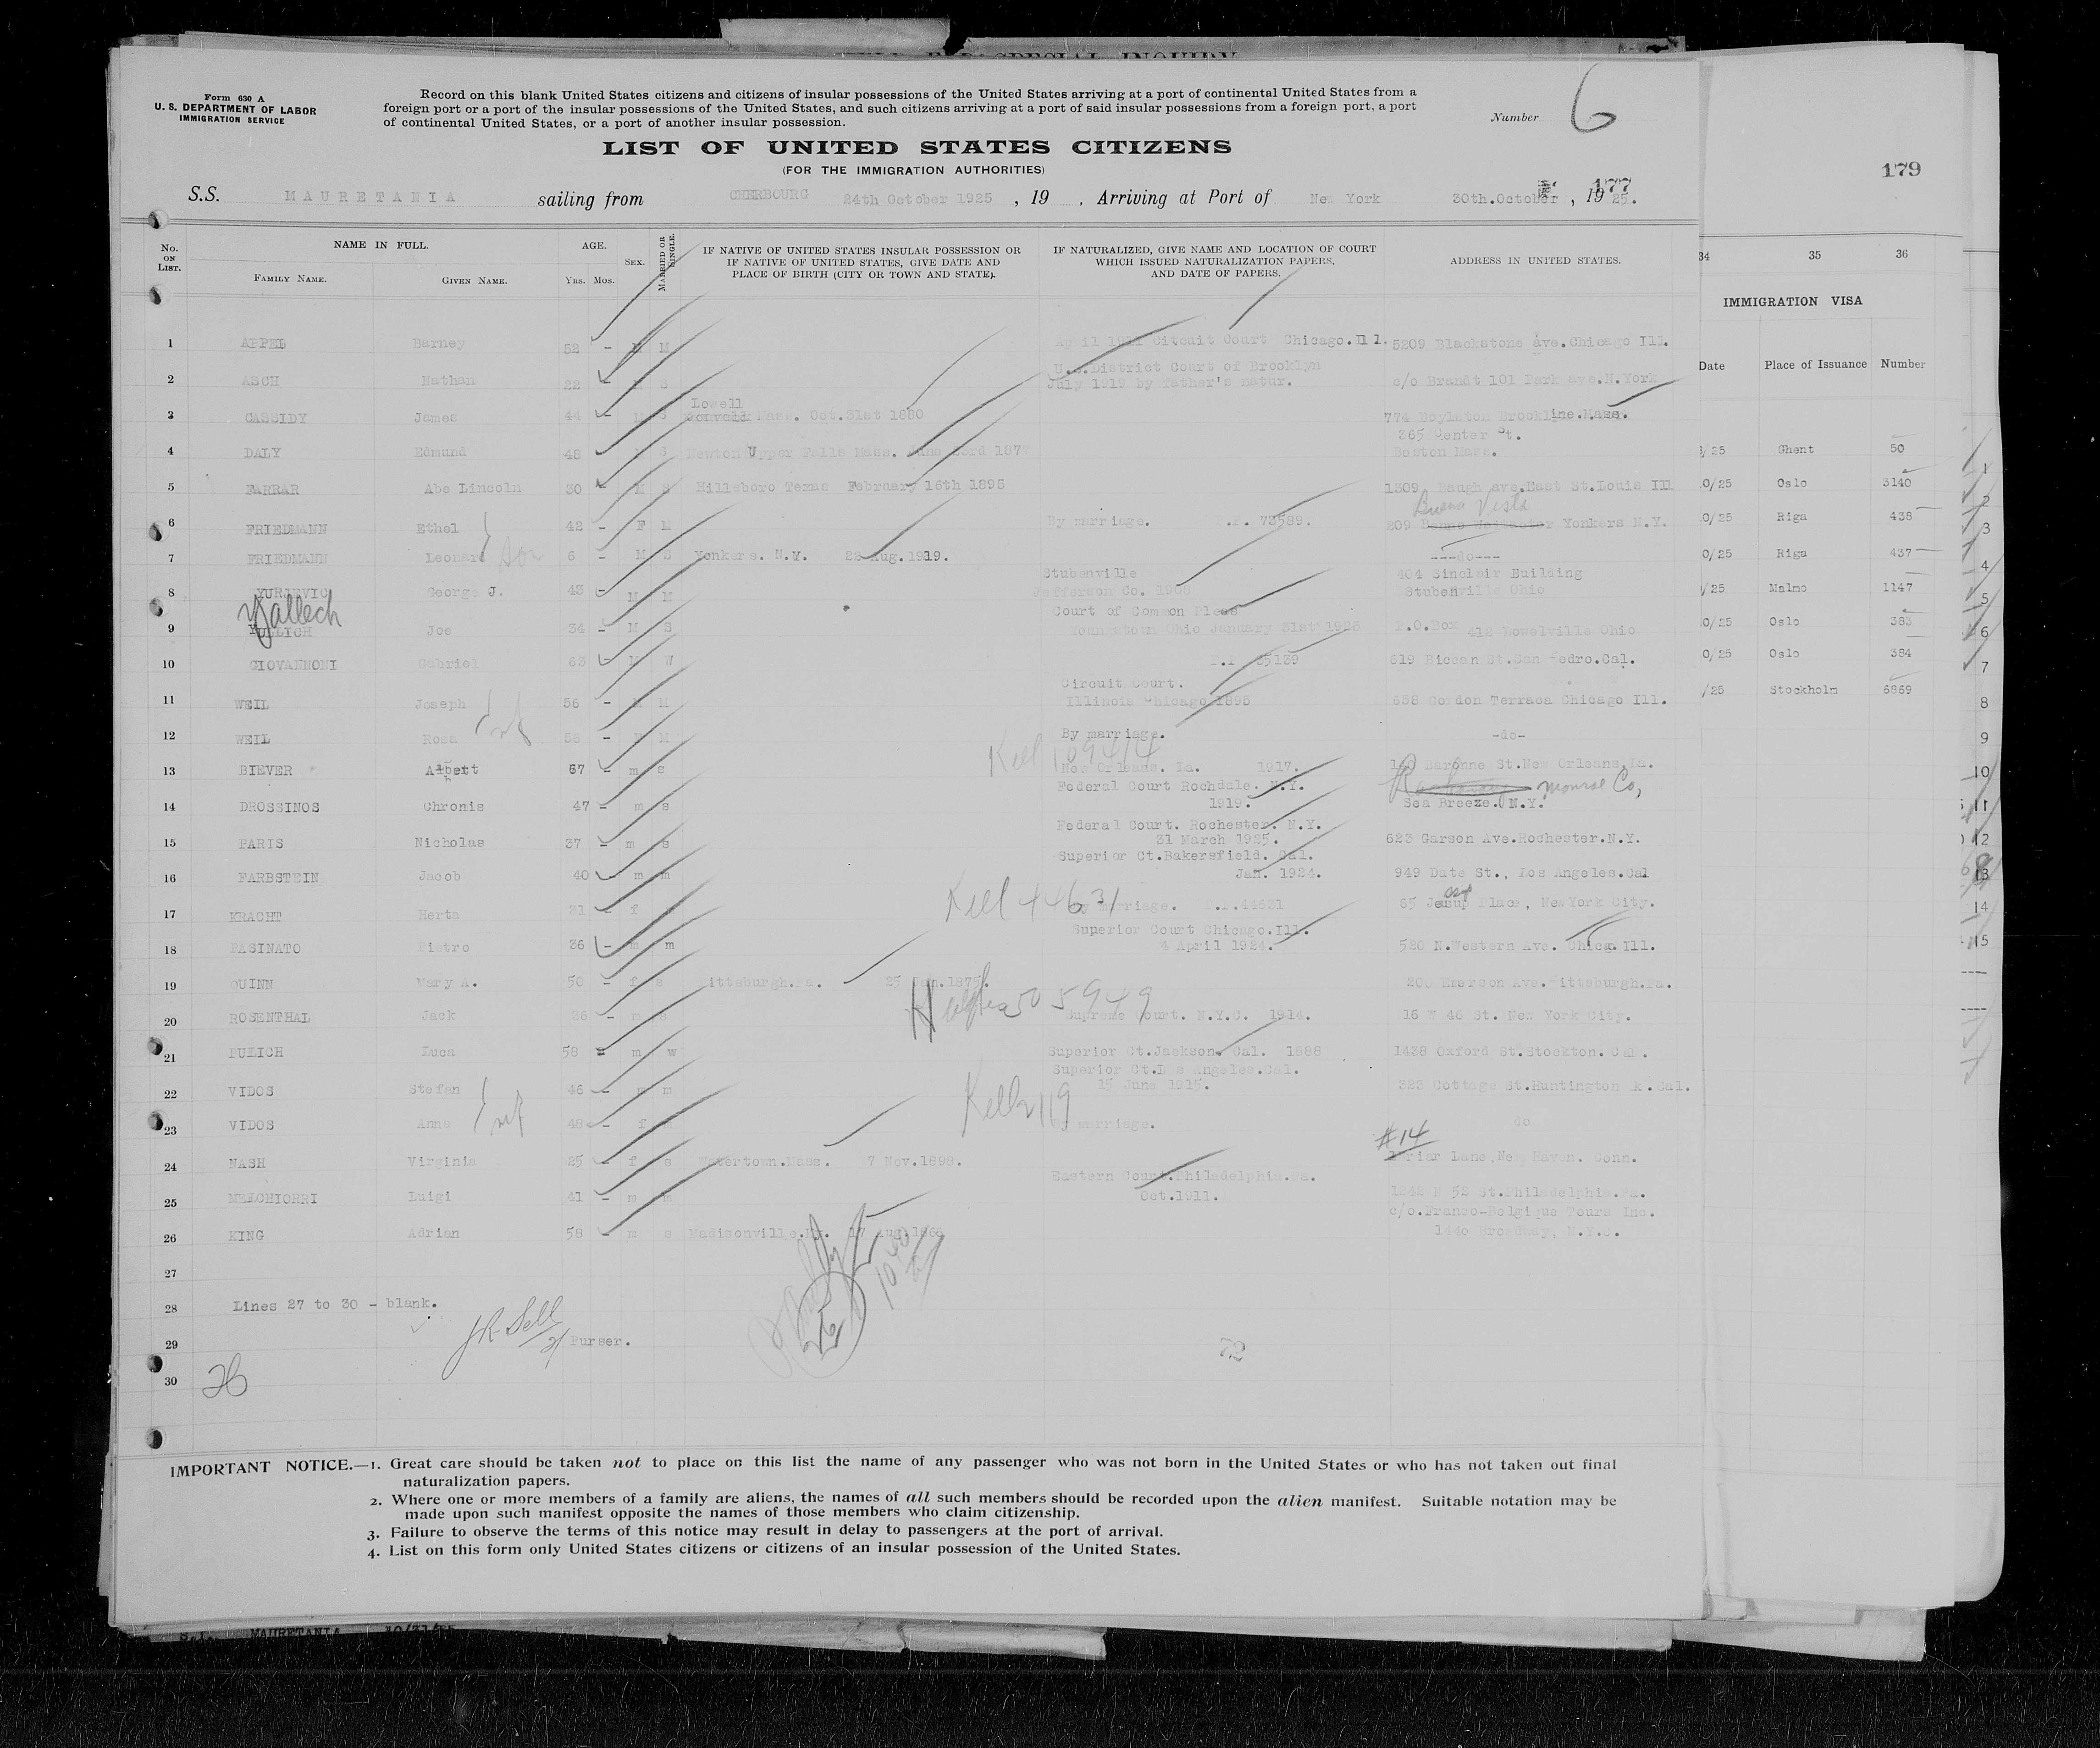 FOR SPECIAL INQUIRY
Form 630 A
U. S. DEPARTMENT OF LABOR
IMMIGRATION SERVICE
Record on this blank United States citizens and citizens of insular possessions of the United States arriving at a port of continental United States from a
foreign port or a port of the insular possessions of the United States, and such citizens arriving at a port of said insular possessions from a foreign port, a port
of continental United States, or a port of another insular possession.
Number 6
LIST OF UNITED STATES CITIZENS
(FOR THE IMMIGRATION AUTHORITIES)
179
177
S.S. MAURETANIA sailing from CHERBOURG 24th October 1925 , 19 , Arriving at Port of New York 30th.October , 19 25.
No. ON LIST. NAME IN FULL. AGE. SEX. MARRIED OR SINGLE. IF NATIVE OF UNITED STATES INSULAR POSSESSION OR IF NATIVE OF UNITED STATES, GIVE DATE AND PLACE OF BIRTH (CITY OR TOWN AND STATE). IF NATURALIZED, GIVE NAME AND LOCATION OF COURT WHICH ISSUED NATURALIZATION PAPERS, AND DATE OF PAPERS. ADDRESS IN UNITED STATES.
FAMILY NAME. GIVEN NAME. YRS. MOS.
1 APPEL Barney 52 - M M April Circuit Court Chicago.Ill. 5209 Blackstone Ave.Chicago Ill.
U.S.District Court of Brooklyn
2 ASCH Nathan 22 - S July 1919 by father's natur. c/o Brandt 101 Park ave.N.York
Lowell
3 CASSIDY James 44 - M S Mass. Oct.31st 1880 774 Boylston Brookline.Mass.
365 Center St.
4 DALY Edmund 48 - M S Newton Upper Falls Mass. June 23rd 1877 Boston Mass.
5 FARRAR Abe Lincoln 30 - M S Hillsboro Texas February 16th 1895 1309 Baugh ave.East St.Louis Ill
Buena Vista
6 FRIEDMANN Ethel 42 - F M By marriage. P.P. 73589. 209 Yonkers N.Y.
7 FRIEDMANN Leonard son 6 - M S Yonkers. N.Y. 22 Aug.1919. ---do---
Stubenville 404 Sinclair Building
8 YURJEVIC George J. 43 - M M Jefferson Co. Stubenville Ohio
Yallech Court of Common Pleas
9 YULLICH Joe 34 - M S Youngstown Ohio January 31st P.O.Box 412 Lowelville Ohio
10 GIOVANNONI Gabriel 63 - M W 519 Bicean St.San Pedro.Cal.
Circuit Court.
11 WEIL Joseph 56 - M M Illinois Chicago 1895 658 Gordon Terrace Chicago Ill.
12 WEIL Rosa wf - M By marriage. -do-
Kell 109414
13 BIEVER Albert 67 - m s New Orleans. La. 1917. 140 Baronne St.New Orleans.La.
Federal Court Rochdale. N.Y. Monroe Co,
14 DROSSINOS Chronis 47 - m s 1919. Sea Breeze. N.Y.
Federal Court. Rochester. N.Y.
15 PARIS Nicholas 37 - m s 31 March 1925. 623 Garson Ave.Rochester.N.Y.
Superior Ct.Bakersfield. Cal.
16 FARBSTEIN Jacob 40 - m m Jan. 1924. 949 Date St., Los Angeles.Cal
Kell 44631
17 KRACHT Herta 21 - f By marriage. P.P.44631 65 Jesup Place, NewYork City.
Superior Court Chicago.Ill.
18 PASINATO Pietro 36 - m m 4 April 1924. 520 N.Western Ave. Chicg. Ill.
19 QUINN Mary A. 50 - f s Pittsburgh.Pa. 25 Jan.1875. 200 Emerson Ave.Pittsburgh.Pa.
505949
20 ROSENTHAL Jack 36 - m s Supreme Court. N.Y.C. 1914. 16 W 46 St. New York City.
21 PULICH Luca 58 - m w Superior Ct.Jackson. Cal. 1888 1438 Oxford St.Stockton. Cal.
Superior Ct.Los Angeles.Cal.
22 VIDOS Stefan 46 - m m 15 June 1915. 323 Cottage St.Huntington Pk.Cal.
23 VIDOS Anna wf 48 - f m By marriage. do
#14
24 NASH Virginia 25 - f s Watertown.Mass. 7 Nov.1898. Briar Lane.New Haven. Conn.
Eastern Court.Philadelphia.Pa.
25 MELCHIORRI Luigi 41 - m m Oct.1911. 1242 N 52 St.Philadelphia.Pa.
c/o.Franco-Belgique Tours Inc.
26 KING Adrian 58 - m s Madisonville.Ky. 17 Aug.1866 1440 Broadway, N.Y.C.
27
28 Lines 27 to 30 - blank.
29 Purser.
30 26
72
IMPORTANT NOTICE.—1. Great care should be taken not to place on this list the name of any passenger who was not born in the United States or who has not taken out final
naturalization papers.
2. Where one or more members of a family are aliens, the names of all such members should be recorded upon the alien manifest. Suitable notation may be
made upon such manifest opposite the names of those members who claim citizenship.
3. Failure to observe the terms of this notice may result in delay to passengers at the port of arrival.
4. List on this form only United States citizens or citizens of an insular possession of the United States.
34 35 36
IMMIGRATION VISA
Date Place of Issuance Number
/25 Ghent 50
0/25 Oslo 3140
0/25 Riga 438
0/25 Riga 437
/25 Malmo 1147
0/25 Oslo 383
0/25 Oslo 384
/25 Stockholm 6869
1
2
3
4
5
6
7
8
9
10
11
12
13
14
15
MAURETANIA